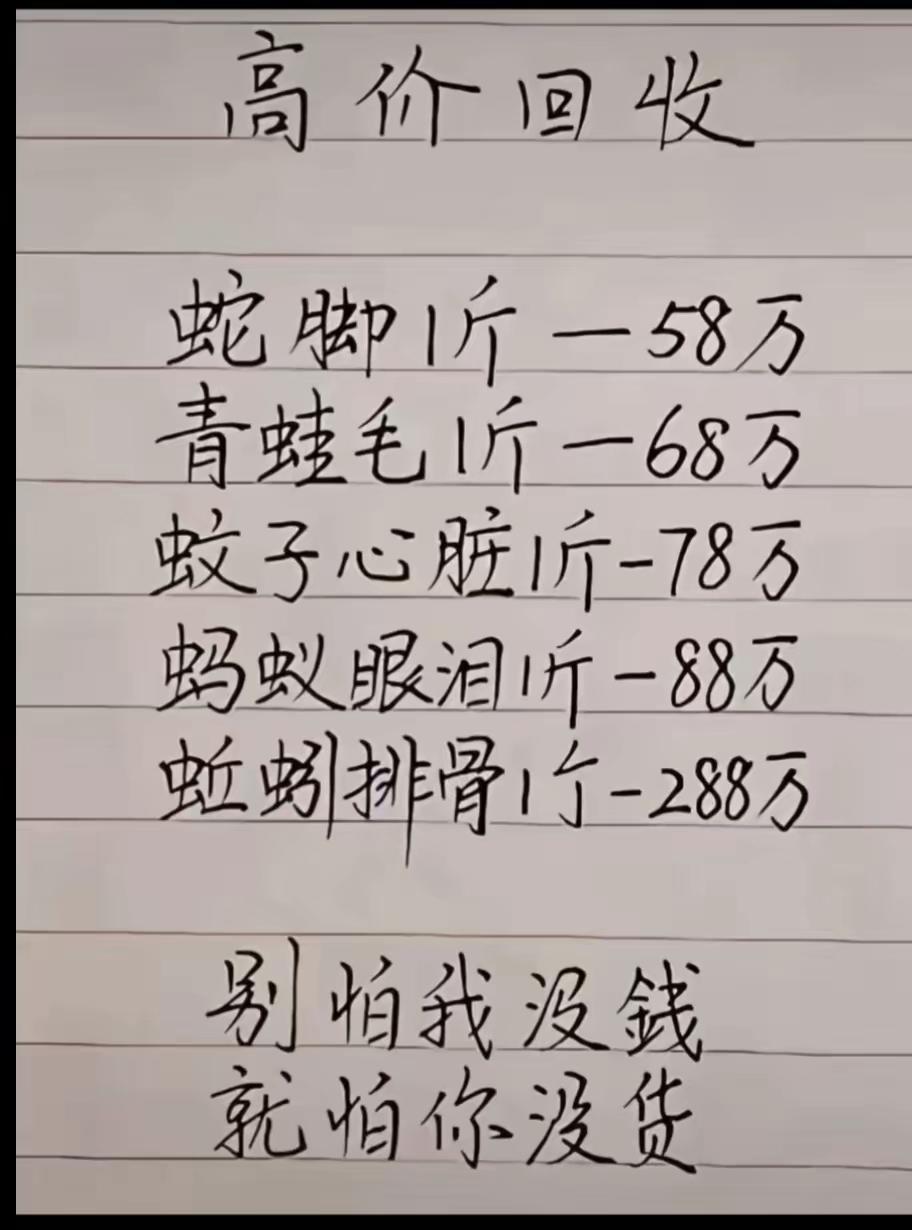 高价回收
蛇脚1斤—58万
青蛙毛1斤—68万
蚊子心脏1斤-78万
蚂蚁眼泪1斤-88万
蚯蚓排骨1斤-288万
别怕我没銭
就怕你没货